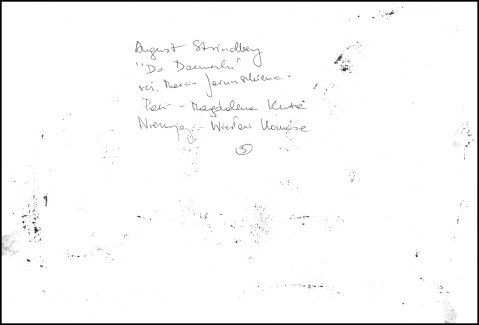 August Strindberg
"Do Damaszku"
reż. Jarmułowicz
Pani - Magdalena Kuta
Nieznajomy - Wiesław Komasa
5